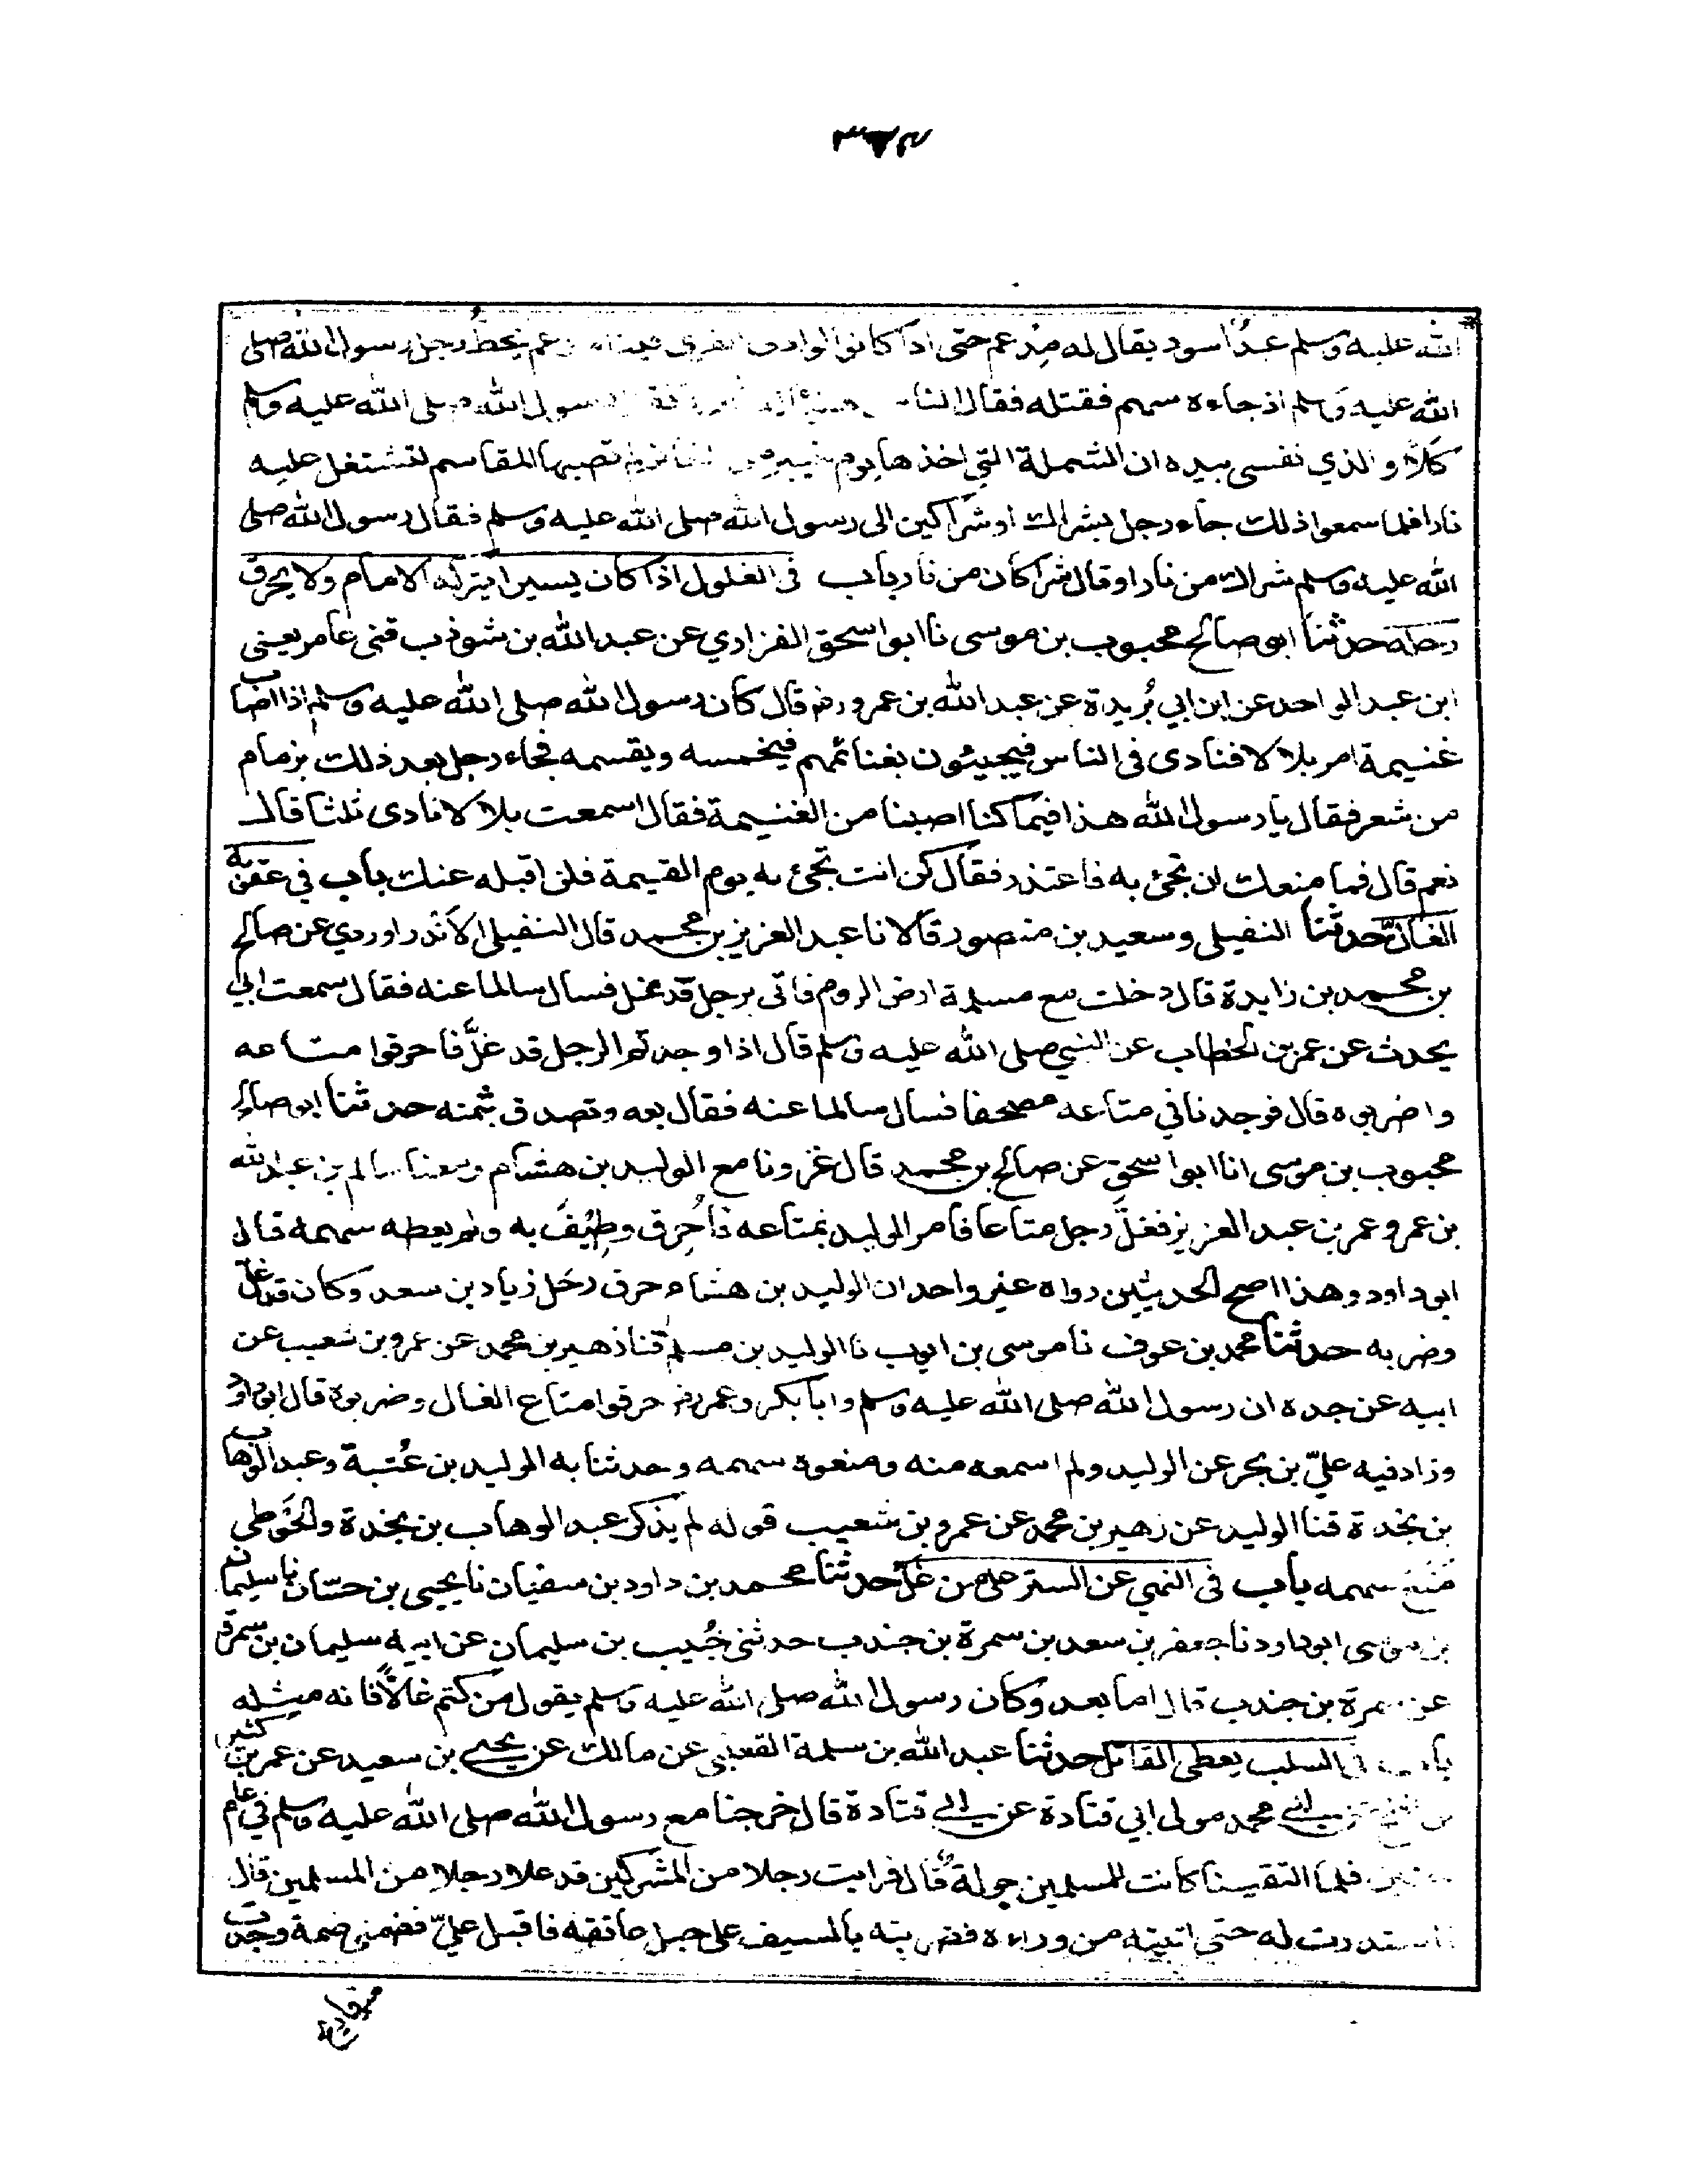 الله عليه وسلم عبدا سود يقال له مِدعم حتى اذا كانوا بوادى القرى فبينا مدعم يحط رحل رسول الله صلى
الله عليه وسلم اذ جاءه سهم فقتله فقال الناس هنيئا له الجنة فقال رسول الله صلى الله عليه وسلم
كلا والذي نفسى بيده ان الشملة التي اخذها يوم خيبر من المغانم لم تصبها المقاسم لتشتعل عليه
نارا فلما سمعوا ذلك جاء رجل بشراك او شراكين الى رسول الله صلى الله عليه وسلم فقال رسول الله صلى
الله عليه وسلم شراك من نار او قال شراكان من نار باب فى الغلول اذا كان يسيرا يتركه الامام ولا يحرق
رحله حدثنا ابو صالح محبوب بن موسى نا ابو اسحق الفزاري عن عبد الله بن شوذب قثنى عامر يعنى
ابن عبد الواحد عن ابن ابي بُريدة عن عبد الله بن عمرو رضـ قال كان رسول الله صلى الله عليه وسلم اذا اصاب
غنيمة امر بلالا فنادى فى الناس فيجيئون بغنائمهم فيخمسه ويقسمه فجاء رجل بعد ذلك بزمام
من شعر فقال يا رسول الله هذا فيما كنا اصبنا من الغنيمة فقال اسمعت بلالا نادى ثلثا قال
نعم قال فما منعك ان تجئ به فاعتذر فقال كن انت تجئ به يوم القيمة فلن اقبله عنك باب في عقوبة
الغال حدثنا النفيلى وسعيد بن منصور قالا نا عبد العزيز بن محمد قال النفيلى الاندراوردي عن صالح
بن محمد بن زايدة قال دخلت مع مسلمة ارض الروم فاتى برجل قد غل فسال سالما عنه فقال سمعت ابي
يحدث عن عمر بن الخطاب عن النبي صلى الله عليه وسلم قال اذا وجدتم الرجل قد غلَّ فاحرقوا متاعه
واضربوه قال فوجدنا في متاعه مصحفا فسال سالما عنه فقال بعه وتصدق بثمنه حدثنا ابو صالح
محبوب بن موسى انا ابو اسحق عن صالح بن محمد قال غزونا مع الوليد بن هشام ومعنا سالم بن عبد الله
بن عمر وعمر بن عبد العزيز فغلَّ رجل متاعا فامر الوليد بمتاعه فاُحرِق وطِيُفَ به ولم يعطه سهمه قال
ابو داود وهذا اصح الحديثين رواه غير واحد ان الوليد بن هشام حرق رحل زياد بن سعد وكان قد غل
وضربه حدثنا محمد بن عوف نا موسى بن ايوب نا الوليد بن مسلم قثنا زهير بن محمد عن عمرو بن شعيب عن
ابيه عن جده ان رسول الله صلى الله عليه وسلم وابا بكر وعمر رضـ حرقوا متاع الغال وضربوه قال ابو داود
وزاد فيه عليّ بن بحر عن الوليد ولم اسمعه منه ومنعوه سهمه وحدثنا به الوليد بن عُتبة وعبد الوهاب
بن نجدة قثنا الوليد عن زهير بن محمد عن عمرو بن شعيب قوله لم يذكر عبد الوهاب بن نجدة والحَوطى
منع سهمه باب فى النهي عن الستر على من غلّ حدثنا محمد بن داود بن سفيان نا يحيى بن حسّان نا سليمان
بن موسى ابو داود نا جعفر بن سعد بن سمرة بن جندب حدثنى خُبيب بن سليمان عن ابيه سليمان بن سمرة
عن سمرة بن جندب قال اما بعد وكان رسول الله صلى الله عليه وسلم يقول من كتم غالاًّ فانه مثله
باب فى السلب يعطى القاتل حدثنا عبد الله بن سلمة القعنبى عن مالك عن يحيى بن سعيد عن عمر بن كثير
بن افلح عن ابى محمد مولى ابي قتادة عن ابى قتادة قال خرجنا مع رسول الله صلى الله عليه وسلم في عام
حنين فلما التقينا كانت للمسلمين جولة قال فرايت رجلا من المشركين قد علا رجلا من المسلمين قال
فاستدرت له حتى اتيته من وراءه فضربته بالسيف على حبل عاتقه فاقبل عليّ فضمنى ضمة وجدت
منها ريح